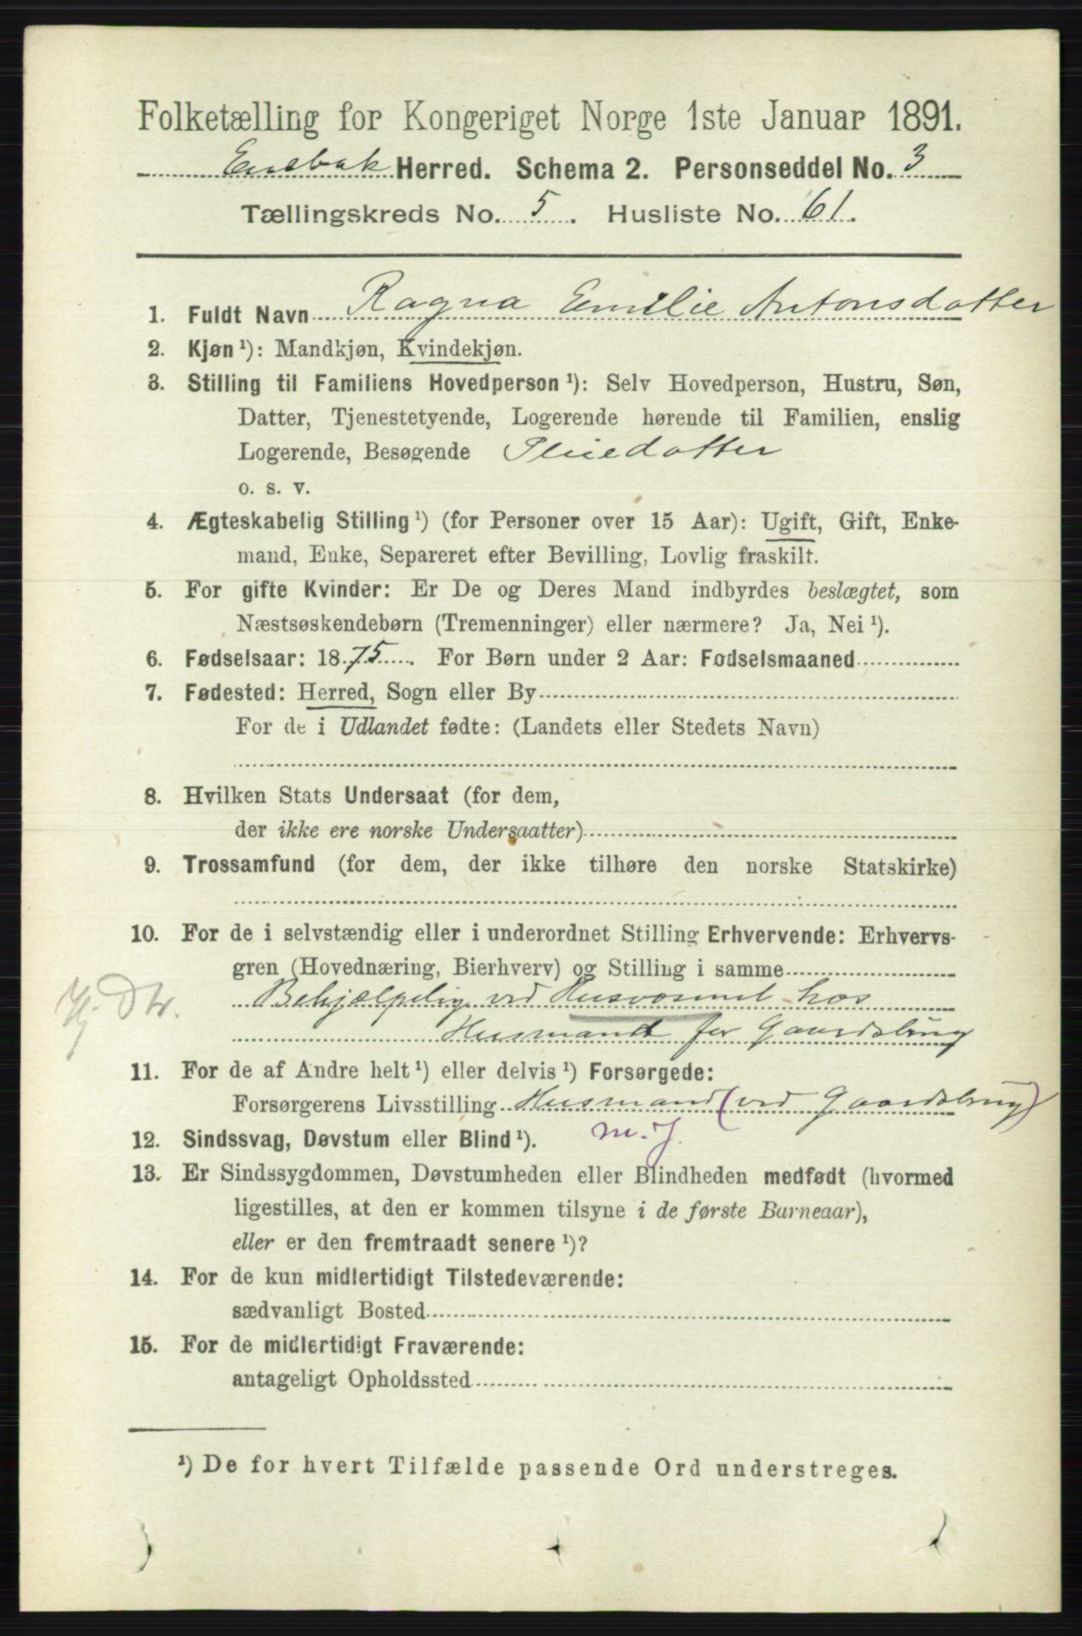 Folketælling for Kongeriget Norge 1ste Januar 1891.
Enebak Herred. Schema 2. Personseddel No. 3
Tællingskreds No. 5. Husliste No. 61.
1. Fuldt Navn Ragna Emilie Antonsdatter
2. Kjøn ¹): Mandkjøn, Kvindekjøn.
3. Stilling til Familiens Hovedperson ¹): Selv Hovedperson, Hustru, Søn,
Datter, Tjenestetyende, Logerende hørende til Familien, enslig
Logerende, Besøgende Pleiedatter
o. s. v.
4. Ægteskabelig Stilling ¹) (for Personer over 15 Aar): Ugift, Gift, Enke-
mand, Enke, Separeret efter Bevilling, Lovlig fraskilt.
5. For gifte Kvinder: Er De og Deres Mand indbyrdes beslægtet, som
Næstsøskendebørn (Tremenninger) eller nærmere? Ja, Nei ¹).
6. Fødselsaar: 1875. For Børn under 2 Aar: Fødselsmaaned
7. Fødested: Herred, Sogn eller By
For de i Udlandet fødte: (Landets eller Stedets Navn)
8. Hvilken Stats Undersaat (for dem,
der ikke ere norske Undersaatter)
9. Trossamfund (for dem, der ikke tilhøre den norske Statskirke)
10. For de i selvstændig eller i underordnet Stilling Erhvervende: Erhvervs-
gren (Hovednæring, Bierhverv) og Stilling i samme
Behjælpelig ved Husvæsenet hos
Hj. Dtr.
Husmand før Gaardsbrug
11. For de af Andre helt ¹) eller delvis ¹) Forsørgede:
Forsørgerens Livsstilling Husmand (ved Gaardsbrug)
m. J.
12. Sindssvag, Døvstum eller Blind ¹).
13. Er Sindssygdommen, Døvstumheden eller Blindheden medfødt (hvormed
ligestilles, at den er kommen tilsyne i de første Barneaar),
eller er den fremtraadt senere ¹)?
14. For de kun midlertidigt Tilstedeværende:
sædvanligt Bosted
15. For de midlertidigt Fraværende:
antageligt Opholdssted
¹) De for hvert Tilfælde passende Ord understreges.